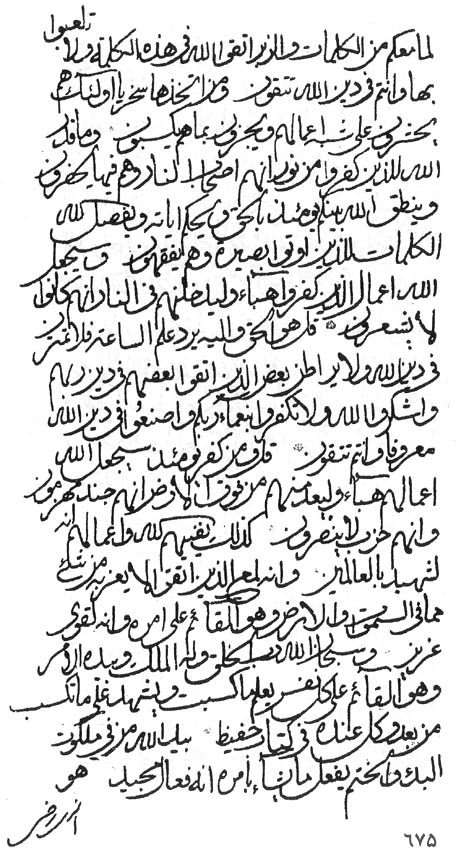 تلعبوا
لما معكم من الكلمات والذين اتقوا الله في هذه الكلمة ولا
بها وانتم في دين الله تتقون ومن اتخذها سخريا اولئك هم
يحشرون على شبه اعمالهم ويجزون بما هم يكسبون وما قدر
الله للذين كفروا من نور انهم اصحاب النار وهم فيها يحصرون
وينطق الله بينكم يومئذ بالحق ويحكم اياته ويفصل الله
الكلمات للذين اوتوا بصيرة وهم يفقهون وسيجعل
الله اعمال الذين كفروا هباء وليدخلنهم في النار انهم كانوا
لا يشعرون قل هو الحق واليه يرد علم الساعة فلا تمترن
في دين الله ولا بعض الذين اتقوا بعضهم في دين ربهم
واشكروا الله ولا تكفروا بنعماء ربكم واصنعوا في دين الله
معروفا وانتم تتقون من كفر يومئذ سيجعل الله
اعمالهم هباء من فوق الارض انهم جند مهزمون
وانهم حزب لا ينصرون كذلك الله واعمالهم انه
لشهيد بالعالمين وانه لمع الذين اتقوا لا يعزب من شئ
مما في السموات والارض وهو القائم على امره وانه لقوي
عزيز وسبحان الله رب الخلق وله الملك وبيده الامر
وهو القائم على كل نفس يعلم ما كسبت ويشهد على ما تكسب
من بعد وكل عنده في كتاب حفيظ بيد الله من في ملكوت
البدء والختم يفعل ما يشاء بامره انه فعال مجيد هو
٦٧٥